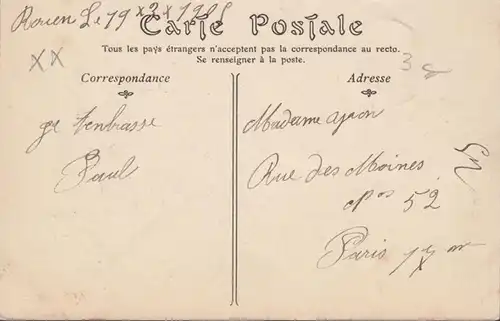 Rouen Le 19 x 2 x 19
Carte Postale
Tous les pays étrangers n'acceptent pas la correspondance au recto.
Se renseigner à la poste.
XX
3
Correspondance
Adresse
ge tenbrasse
Paul
Madame
Rue des Moines
nos 52
Paris 17 me